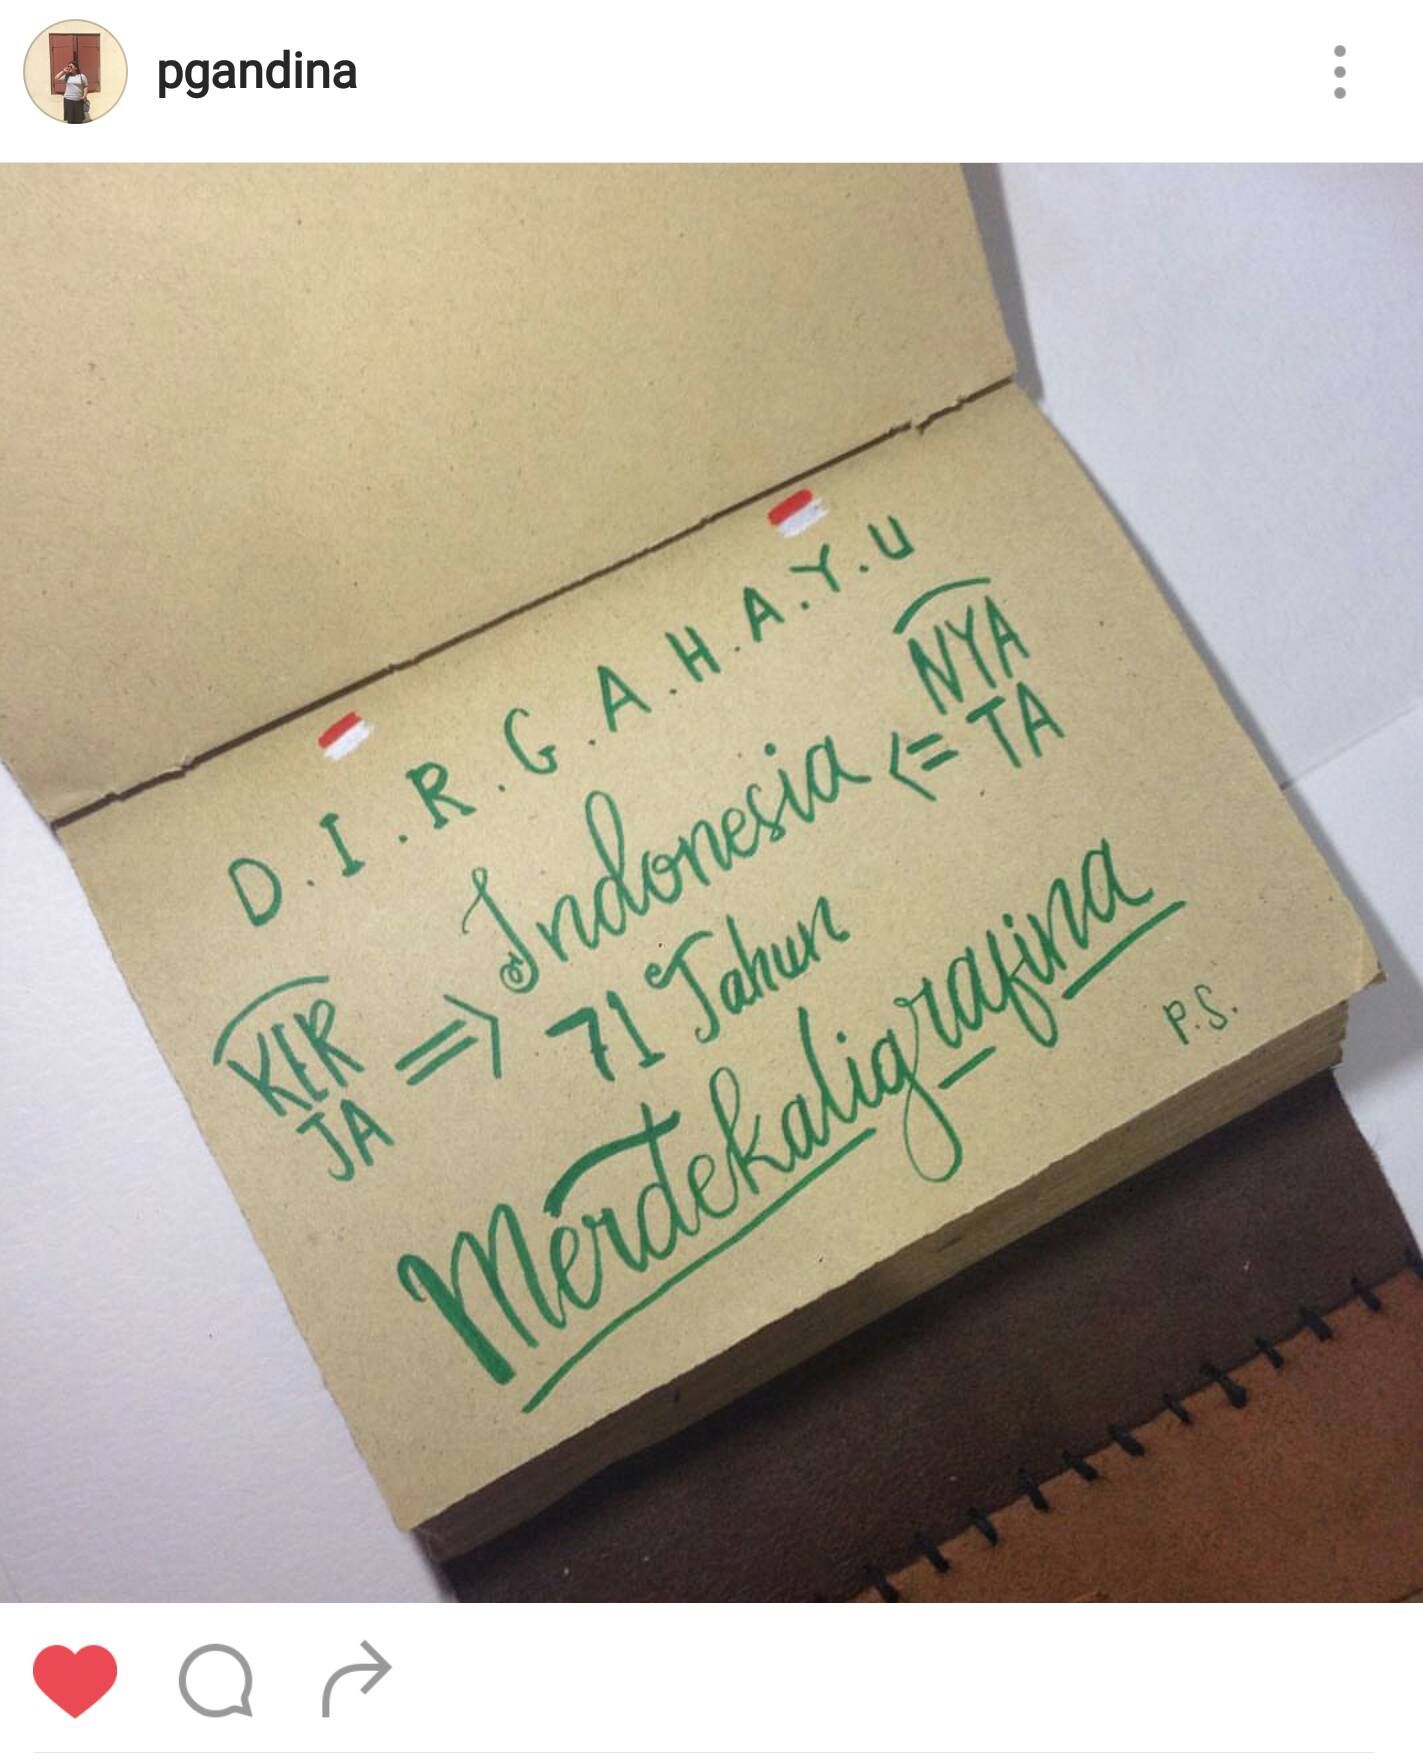 pgandina
D.I.R.G.A.H.A.Y.U
Indonesia <= NYA
TA
KER
JA => 71 Tahun
Merdekaligrafina
P.S.